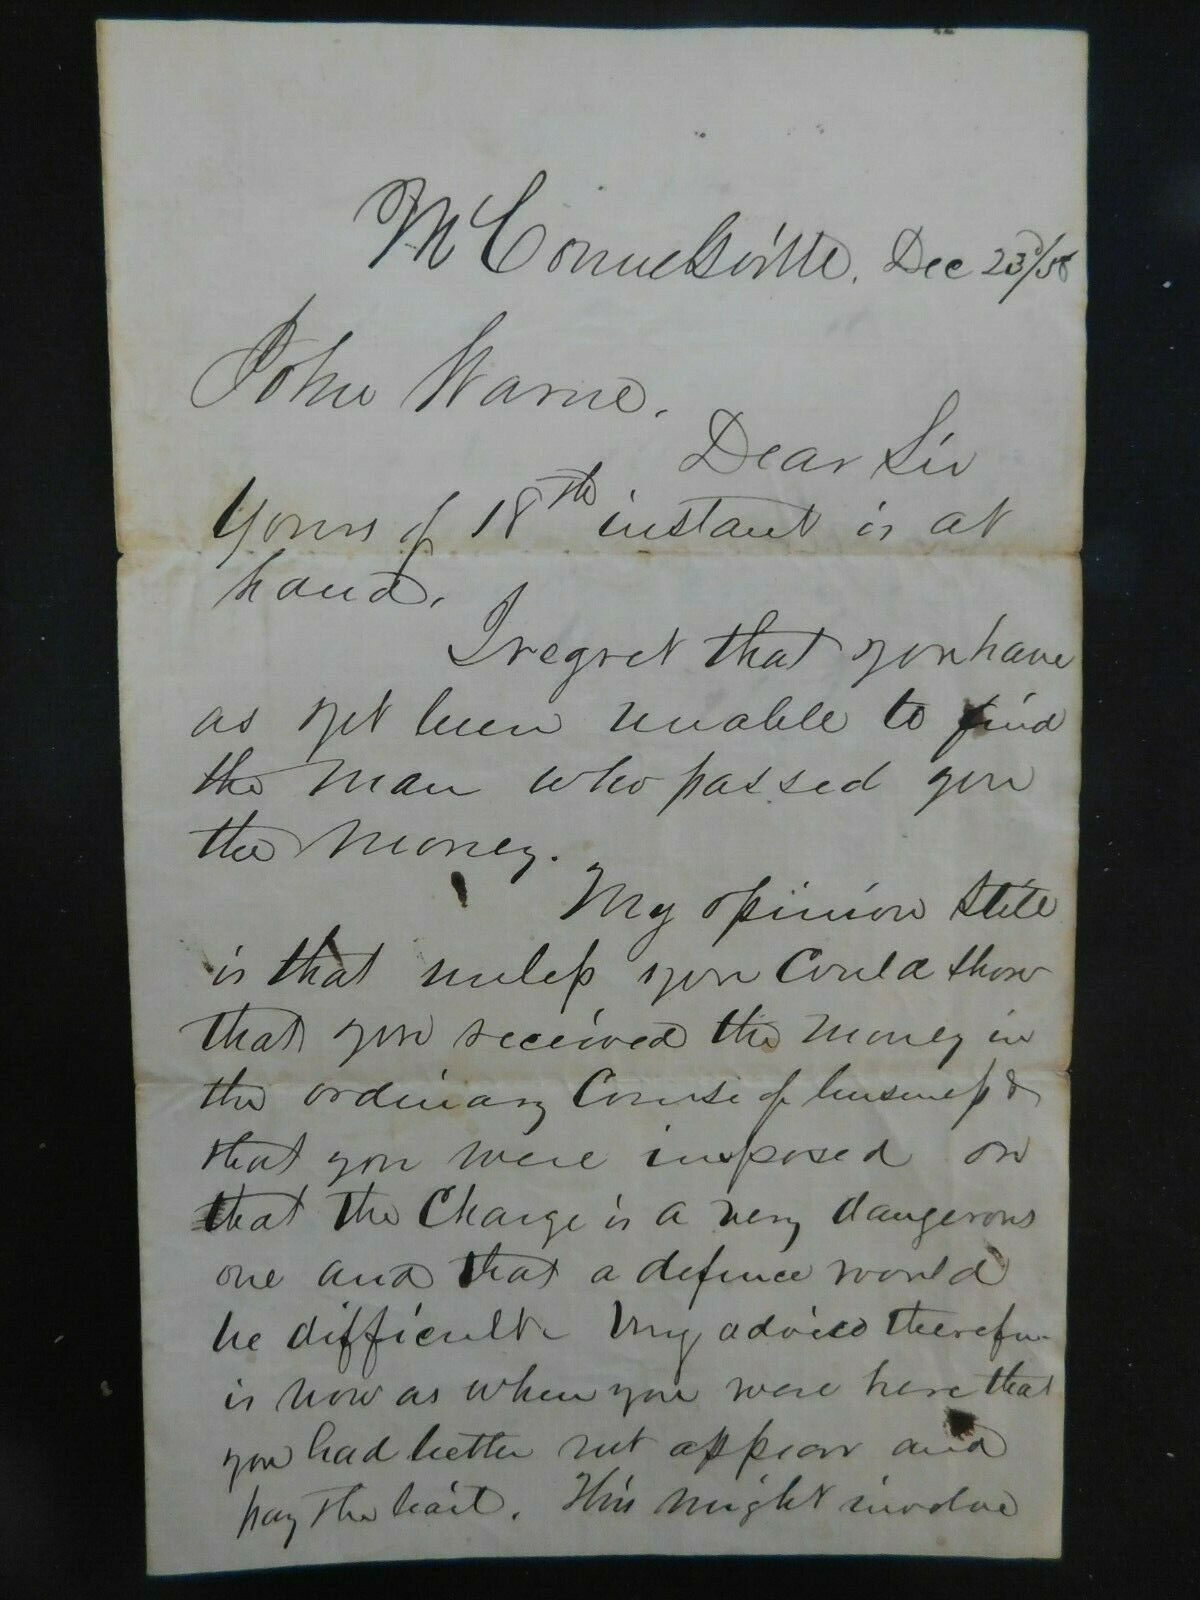 McConnelsville, Dec 23d/58
John Warne.
Dear Sir
Yours of 18th instant is at
hand.
I regret that you have
as yet been unable to find
the man who passed you
the money.
My opinion still
is that unless you Could show
that you received the money in
the ordinary Course of business &
that you were imposed on
that the Charge is a very dangerous
one and that a defence would
be difficult My advice therefore
is now as when you were here that
you had better not appear and
pay the bail. This might involve